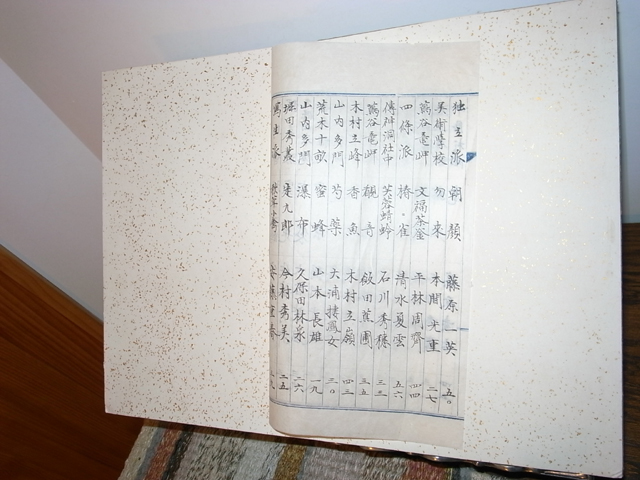 独立派 朝顔 藤原二英 五〇
美術学校 勿来 本間光重 二七
鶴谷亀岬 文福茶釜 平林周齋 四四
四條派 椿・雀 清水夏雲 五六
傳神洞社中 芙蓉蜻蛉 石川秀穂 三三
鶴谷亀岬 観音 飯田蕉圃 三五
木村立峰 香魚 木村立嶺 四三
山内多門 芍薬 大浦接鳳女 三〇
荒木十畝 蜜蜂 山本長雄 一九
山内多門 瀑布 久保田林泉 二六
堀田秀叢 是九郎 今村秀美 二五